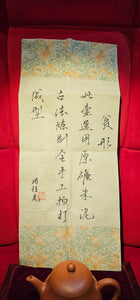 形
此壶选用原礦朱泥
古法炼制全手工拍打
成型